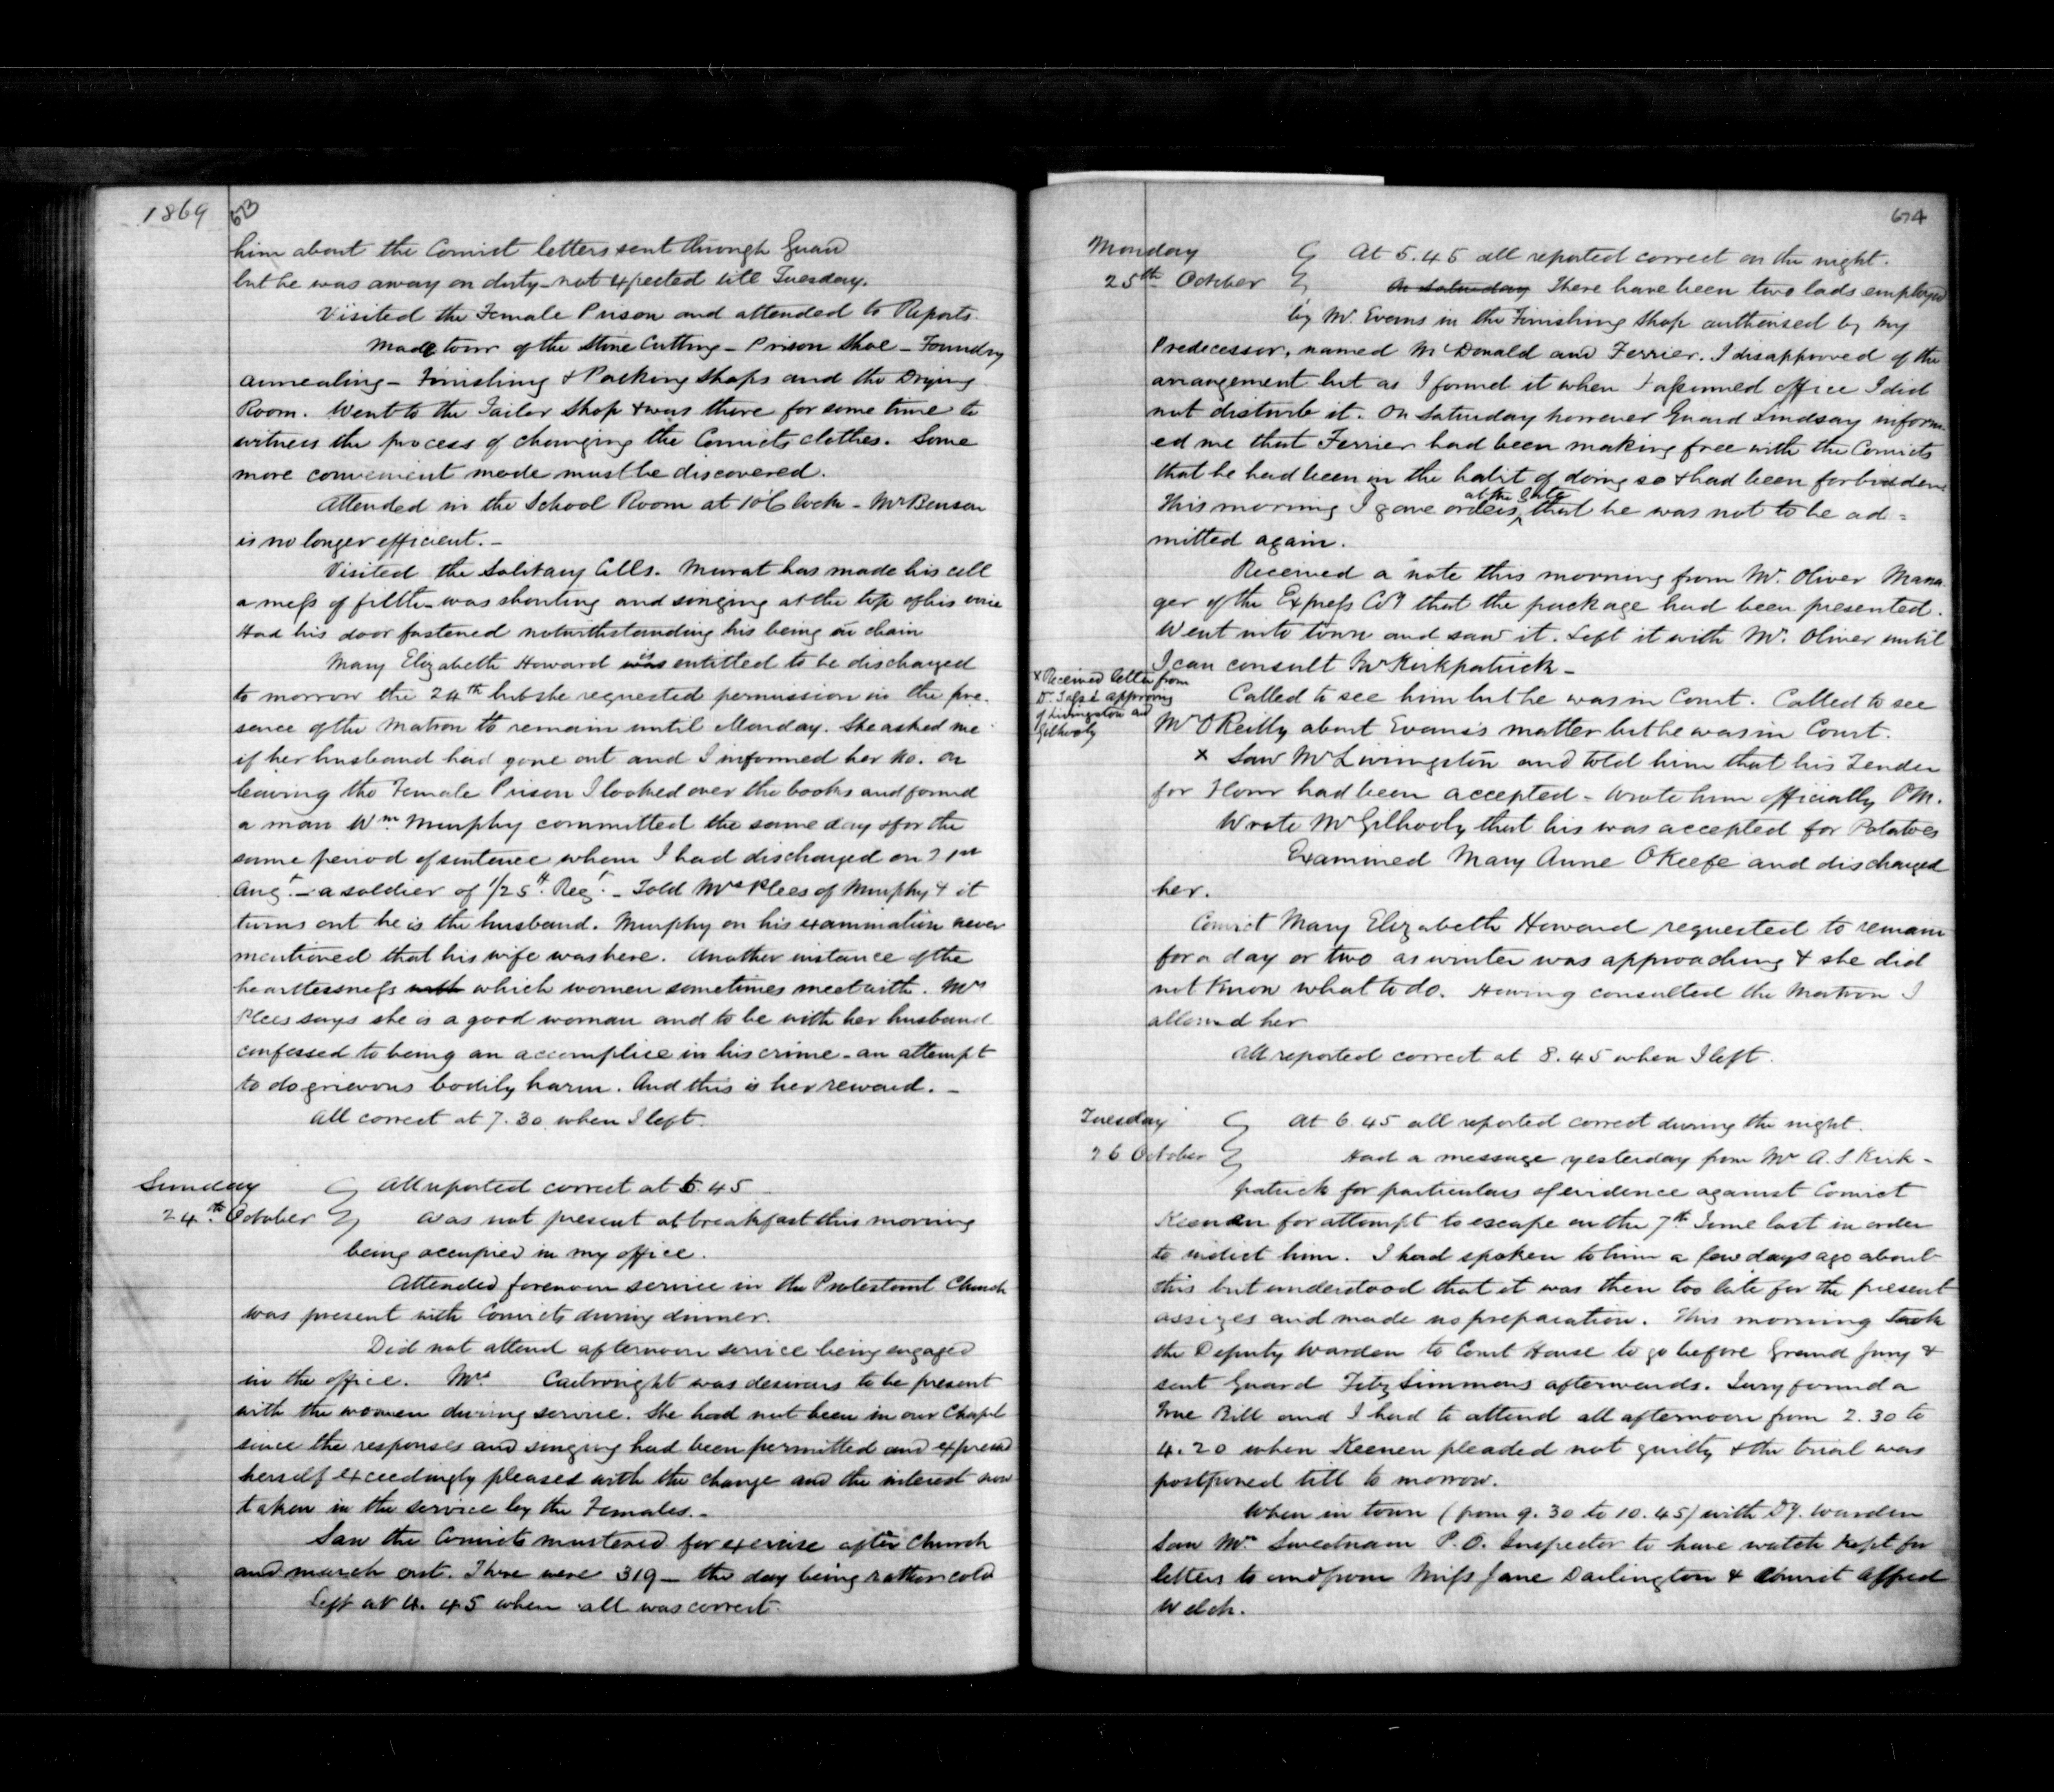 1869
673
him about the Convict letters sent through Guard
but he was away on duty - not expected till Tuesday.
Visited the Female Prison and attended to Reports.
Made tour of the Stone Cutting - Prison Shoe - Foundry
Annealing - Finishing & Packing Shops and the Drying
Room. Went to the Tailor Shop & was there for some time to
witness the process of changing the Convicts clothes. Some
more convenient mode must be discovered.
Attended in the School Room at 1 o'Clock - Mr Benson
is no longer efficient. -
Visited the Solitary Cells. Murat has made his cell
a mess of filth - was shouting and singing at the top of his voice
Had his door fastened notwithstanding his being in chain
Mary Elizabeth Howard was is entitled to be discharged
to morrow the 24th but she requested permission in the pre-
sence of the Matron to remain until Monday. She asked me
if her husband had gone out and I informed her no. On
leaving the Female Prison I looked over the books and found
a man Wm Murphy committed the same day & for the
same period of sentence whom I had discharged on 21st
Augt. - a soldier of 1/25th Regt. - Told Mrs Plees of Murphy & it
turns out he is the husband. Murphy on his examination never
mentioned that his wife was here. Another instance of the
heartlessness with which women sometimes meet with. Mrs
Plees says she is a good woman and to be with her husband
confessed to being an accomplice in his crime - an attempt
to do grievous bodily harm. And this is her reward. -
All correct at 7.30 when I left.
Sunday
24th October
All reported correct at 6.45
Was not present at breakfast this morning
being occupied in my office.
Attended forenoon service in the Protestant Church
was present with Convicts during dinner.
Did not attend afternoon service being engaged
in the office. Mrs Cartwright was desirous to be present
with the women during service. She had not been in our Chapel
since the responses and singing had been permitted and expressed
herself exceedingly pleased with the change and the interest now
taken in the service by the Females. -
Saw the Convicts mustered for exercise after Church
and march out. There were 319 - the day being rather cold
Left at 4.45 when all was correct.
674
Monday
25th October
At 5.45 all reported correct on the night.
On Saturday There have been two lads employed
by Mr. Evans in the Finishing Shop authorised by my
Predecessor, named McDonald and Ferrier. I disapproved of the
arrangement but as I found it when I assumed office I did
not disturb it. On Saturday however Guard Lindsay inform-
ed me that Ferrier had been making free with the Convicts
that he had been in the habit of doing so & had been forbidden.
This morning I gave orders at the Gate that he was not to be ad=
mitted again.
Received a note this morning from Mr. Oliver Mana-
ger of the Express Coy that the package had been presented.
Went into town and saw it. Left it with Mr. Oliver until
I can consult Mr Kirkpatrick -
x Received letter from
Dr approving
of Livingston and
Gilhooly
Called to see him but he was in Court. Called to see
Mr O'Reilly about Evans's matter but he was in Court.
x Saw Mr Livingston and told him that his Tender
for Flour had been accepted - Wrote him officially PM.
Wrote Mr Gilhooly that his was accepted for Potatoes
Examined Mary Anne O'Keefe and discharged
her.
Convict Mary Elizabeth Howard requested to remain
for a day or two as winter was approaching & she did
not know what to do. Having consulted the Matron I
allowed her
All reported correct at 8.45 when I left.
Tuesday
26 October
At 6.45 all reported correct during the night.
Had a message yesterday from Mr A. S. Kirk-
patrick for particulars of evidence against Convict
Keenan for attempt to escape on the 7th June last in order
to indict him. I had spoken to him a few days ago about
this but understood that it was then too late for the present
assizes and made no preparation. This morning took
the Deputy Warden to Court House to go before Grand Jury &
sent Guard FitzSimmons afterwards. Jury found a
True Bill and I had to attend all afternoon from 2.30 to
4.20 when Keenen pleaded not guilty & the trial was
postponed till to morrow.
When in town (from 9.30 to 10.45) with Dy. Warden
Saw Mr Sweetnam P.O. Inspector to have watch kept for
letters to and from Miss Jane Darlington & Convict Alfred
Welch.